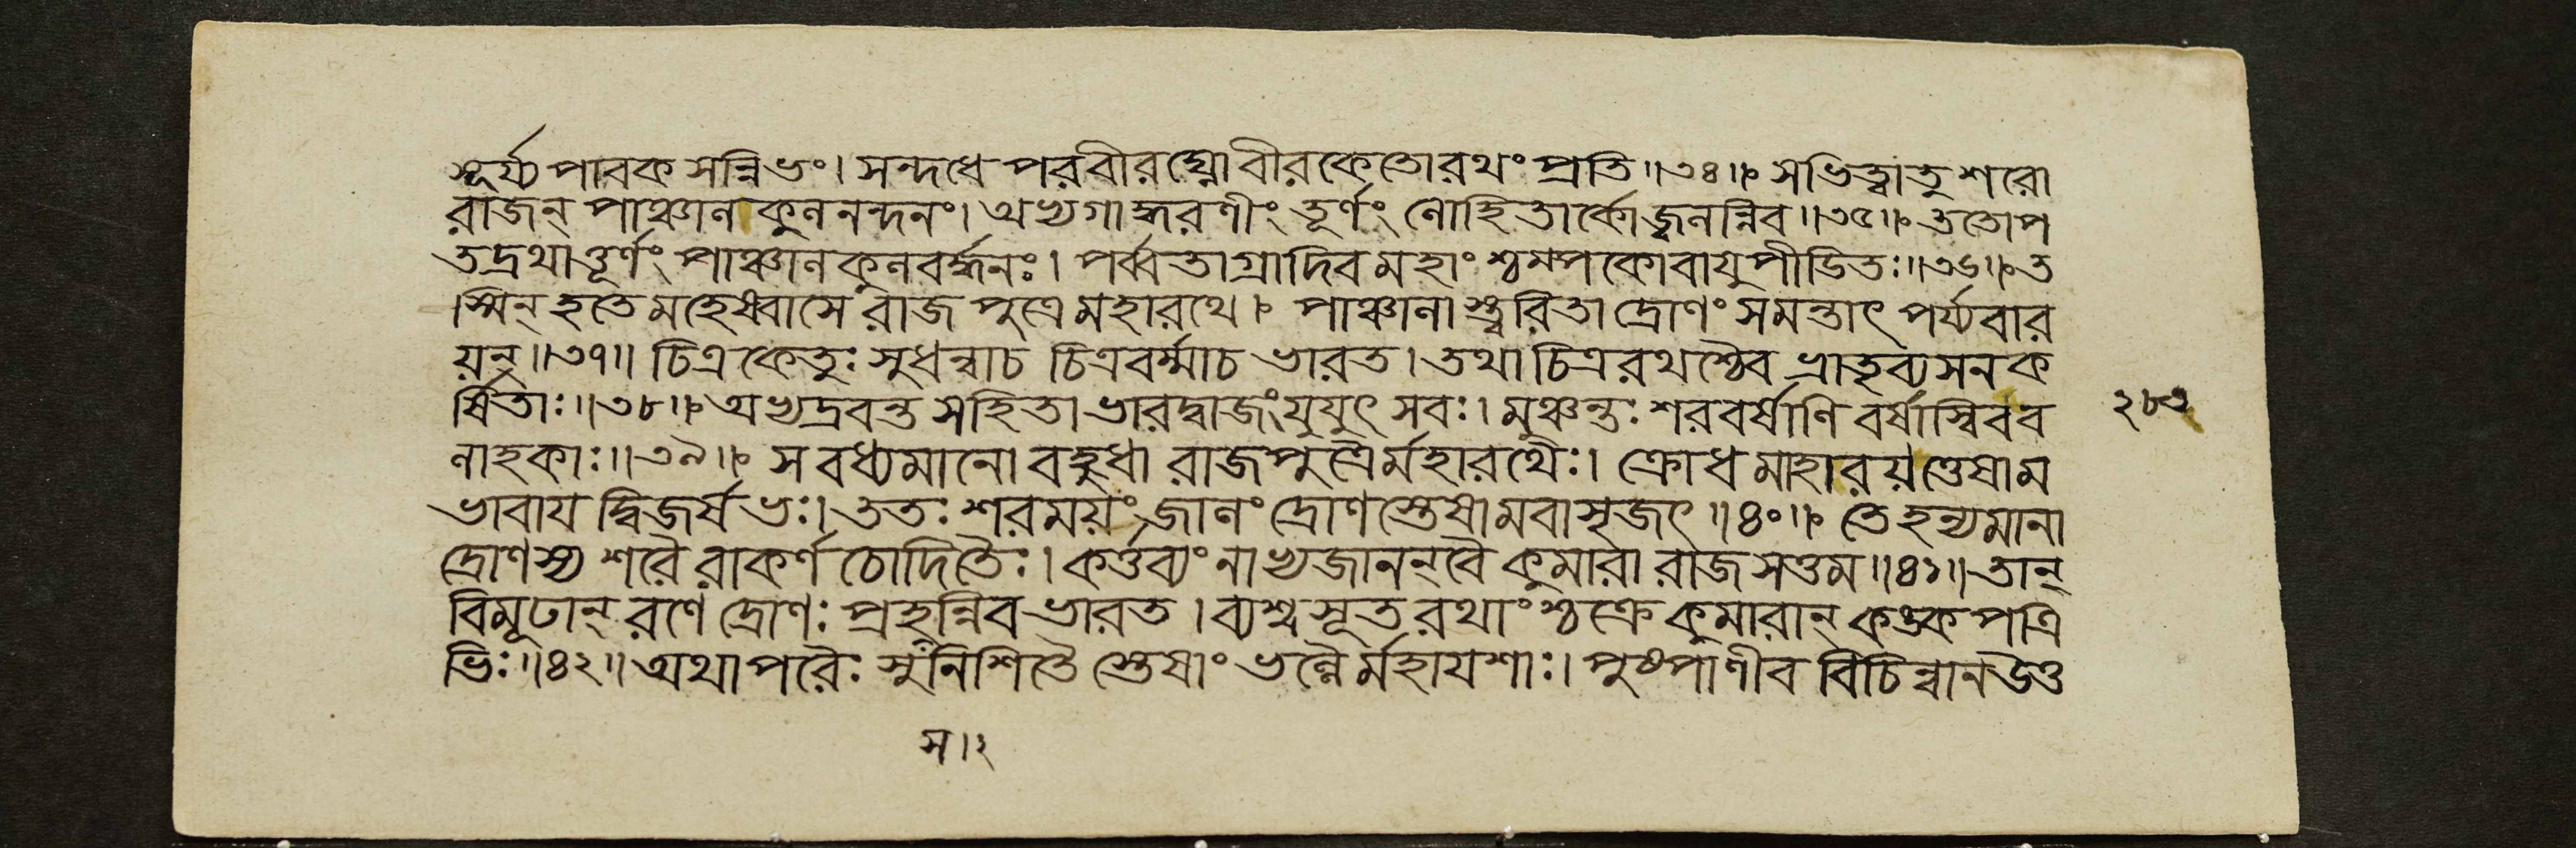 সূর্য্য পাবক সন্নিভং। সন্দধে পরবীরঘ্নো বীরকেতোরথং প্রতি॥৩৪॥ সভিত্ত্বাতু শরো
রাজন্ পাঞ্চাল কুলনন্দনং। অভ্যগাদ্ধরণীং তূর্ণং লোহিতার্দ্রোজ্বলন্নিব॥৩৫॥ ততোপ
তদ্রথাত্তূর্ণং পাঞ্চালকুলবর্দ্ধনঃ। পর্ব্বতাগ্রাদিব মহাংশ্চম্পকো বায়ুপীডিতঃ॥৩৬॥ ত
স্মিন্ হতে মহেষ্বাসে রাজপুত্রে মহারথে। পাঞ্চালা স্ত্বরিতা দ্রোণং সমন্তাৎ পর্য্যবার
য়ন্॥৩৭॥ চিত্রকেতুঃ সুধন্বাচ চিত্রবর্ম্মাচ ভারত। তথা চিত্ররথশ্চৈব ভ্রাতৃব্যসনক
র্ষিতাঃ॥৩৮॥ অভ্যদ্রবন্ত সহিতা ভারদ্বাজং যুযুৎসবঃ। মুঞ্চন্তঃ শরবর্ষাণি বর্ষাস্বিবব
২৮৩
লাহকাঃ॥৩৯॥ স বধ্যমানো বহুধা রাজপুত্রৈর্মহারথৈঃ। ক্রোধমাহারয়ত্তেষাম
ভাবায দ্বিজর্ষভঃ। ততঃ শরময়ং জালং দ্রোণস্তেষামবাসৃজৎ॥৪০॥ তে হন্যমানা
দ্রোণস্য শরৈরাকর্ণ চোদিতৈঃ। কর্ত্তব্যং নাভ্যজানন্বৈ কুমারা রাজসত্তম॥৪১॥ তান্
বিমূঢান্ রণে দ্রোণঃ প্রহসন্নিব ভারত। ব্যশ্বসূতরথাংশ্চক্রে কুমারান্ কঙ্কপত্রি
ভিঃ॥৪২॥ অথাপরৈঃ সুনিশিতৈ স্তেষাং ভল্লৈর্মহাযশাঃ। পুষ্পাণীব বিচিন্বানউত্ত
স।২